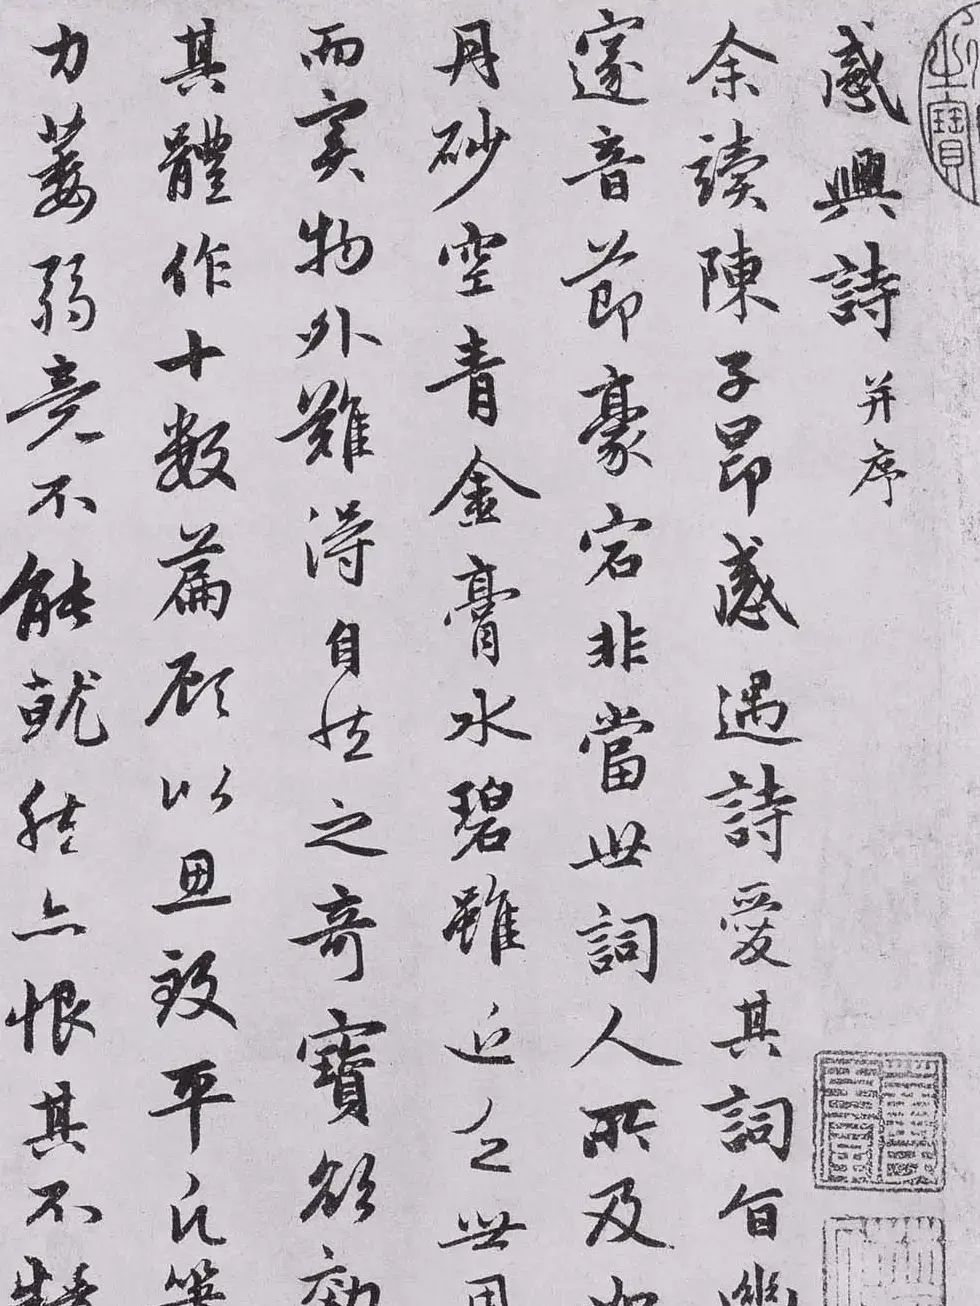 感興詩并序
余讀陳子昂感遇詩愛其詞旨幽
邃音節豪宕非當世詞人所及如
丹砂空青金膏水碧雖近乏世用
而實物外難得自然之奇寶欲效
其體作十數篇顧以思致平凡筆
力萎弱竟不能就然亦恨其不精
之寶